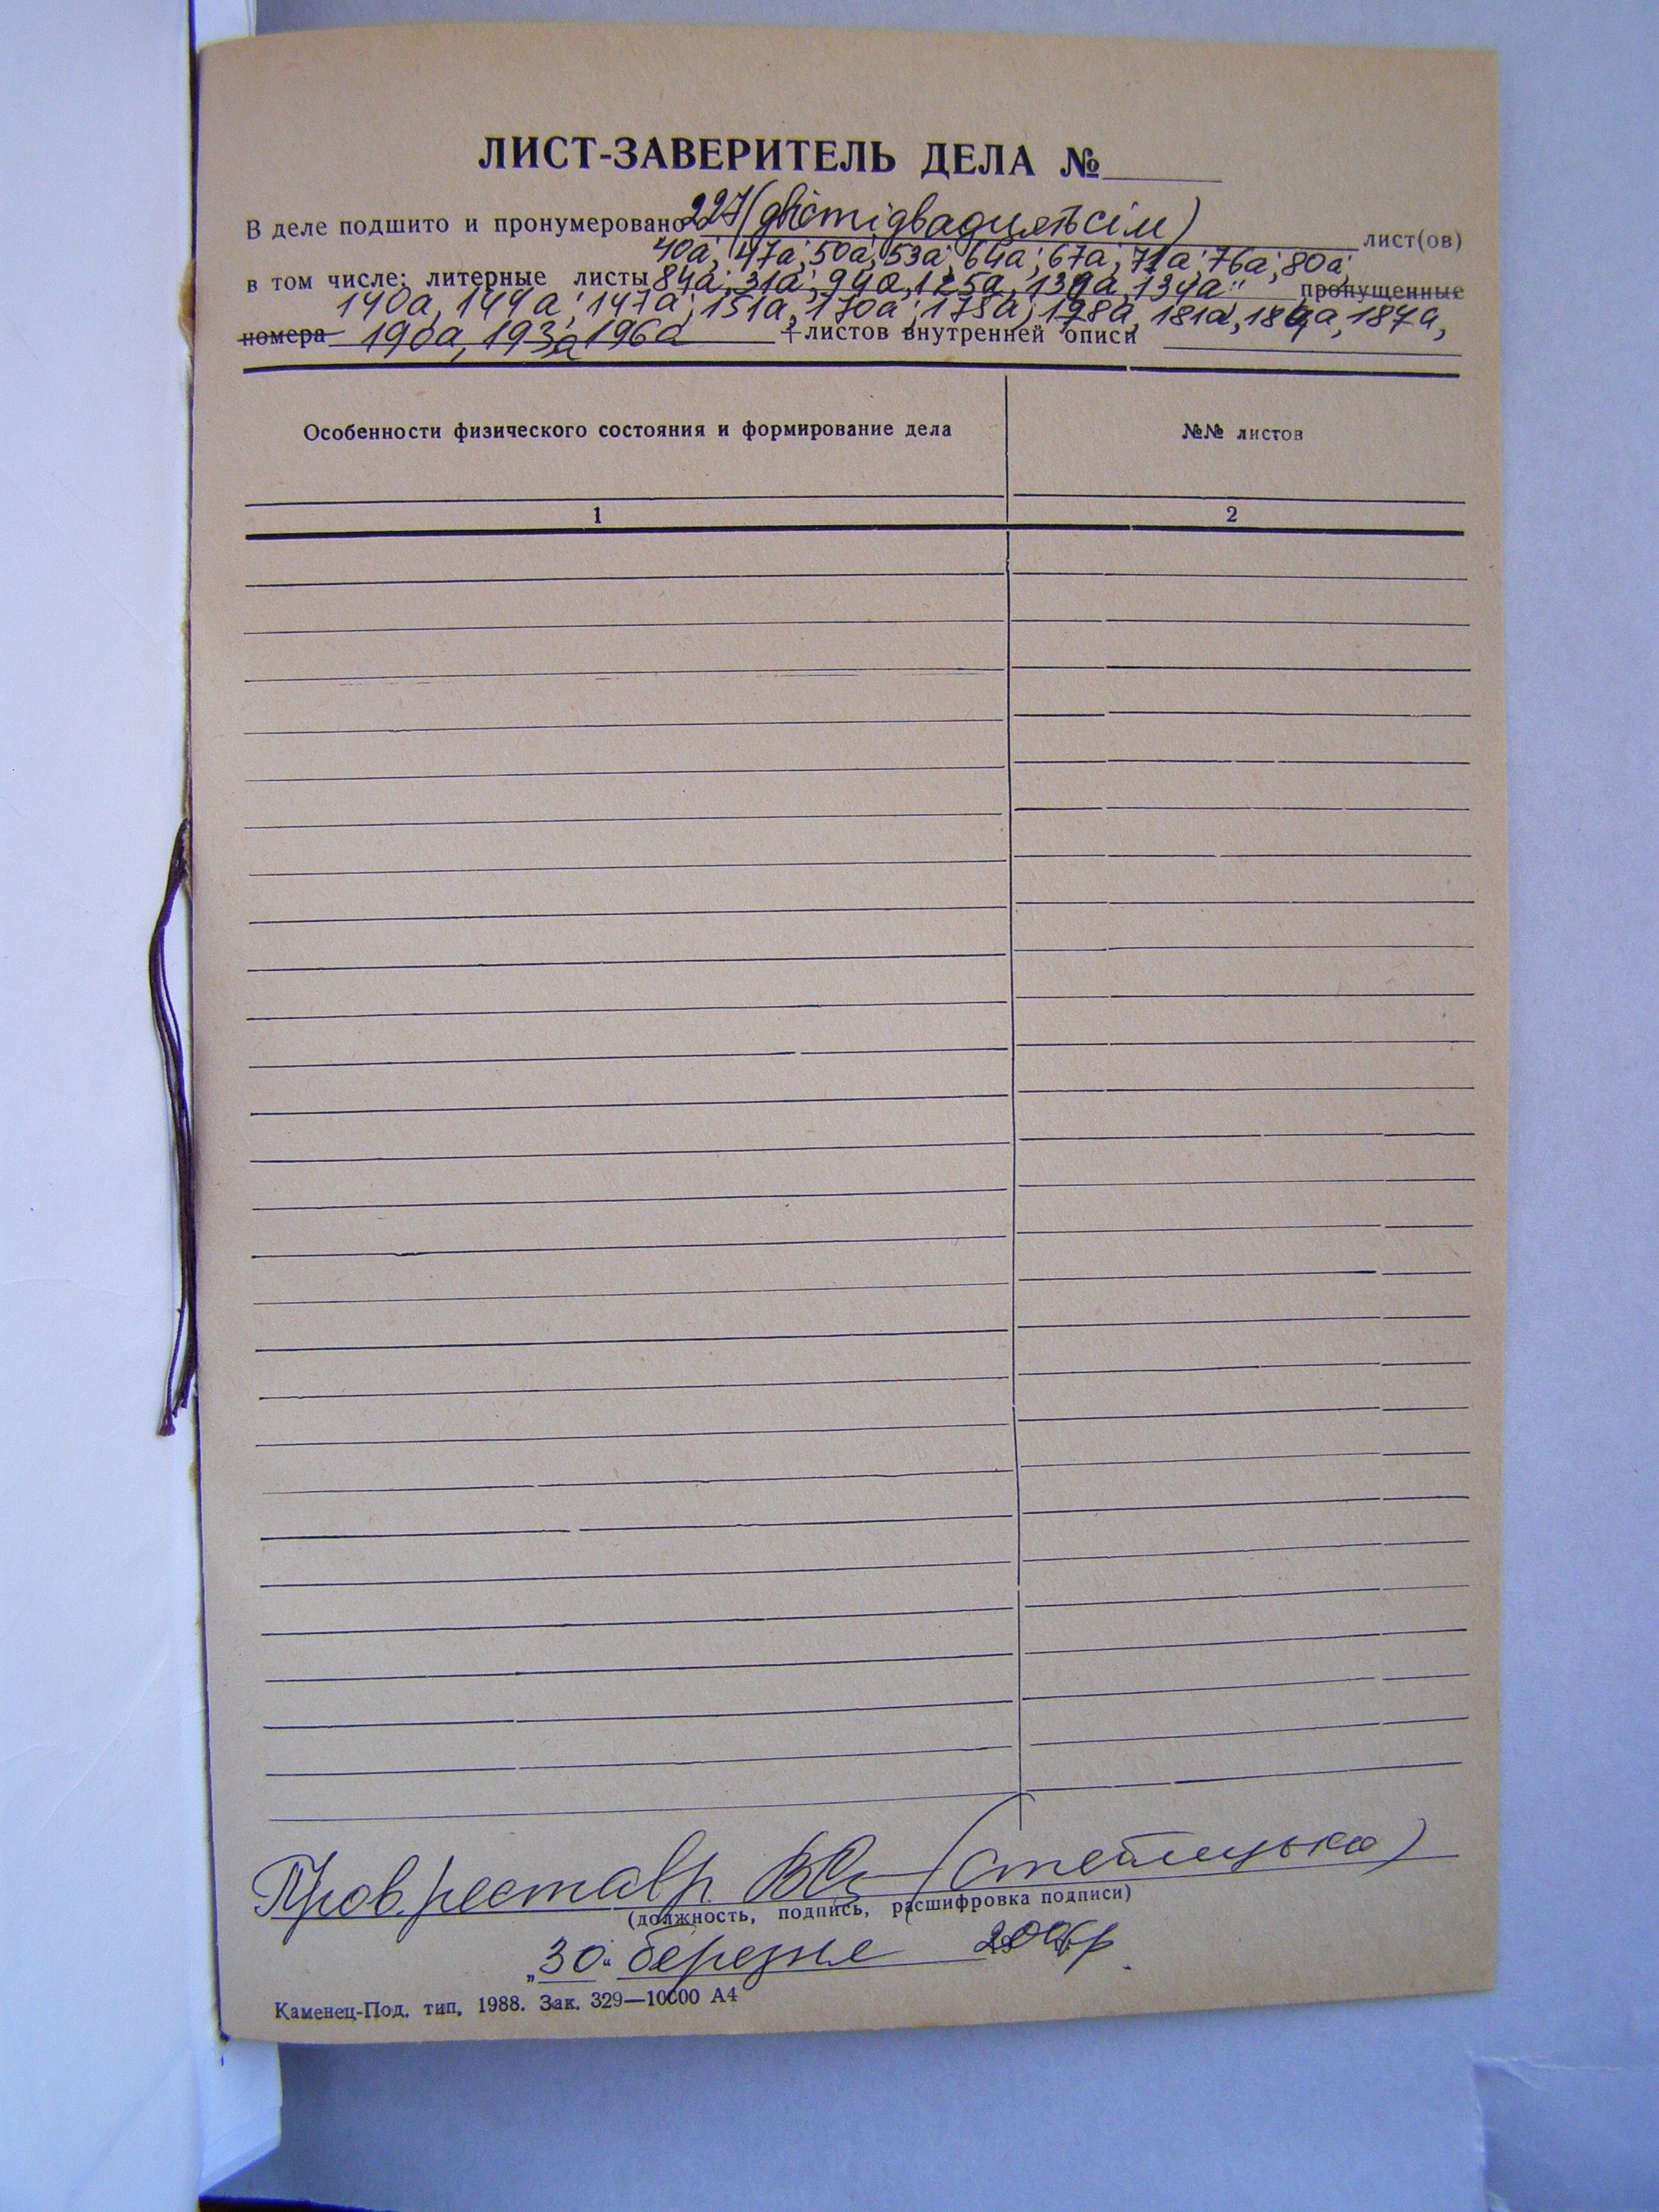 ЛИСТ-ЗАВЕРИТЕЛЬ ДЕЛА №
В деле подшито и пронумеровано 227 (двістідвадцятьсім) лист(ов)
40а; 47а; 50а; 53а; 64а; 67а; 71а; 76а; 80а;
в том числе: литерные листы 84а; 31а; 94а, 125а, 139а, 134а; пропущенные
140а, 144а; 147а; 151а, 170а; 175а; 178а, 181а, 184а, 187а,
номера 190а, 193а, 196а + листов внутренней описи
Особенности физического состояния и формирование дела
№№ листов
1
2
Пров. реставр. (Стельницька)
(должность, подпись, расшифровка подписи)
„30" березня 2006р.
Каменец-Под. тип. 1988. Зак. 329—10000 А4